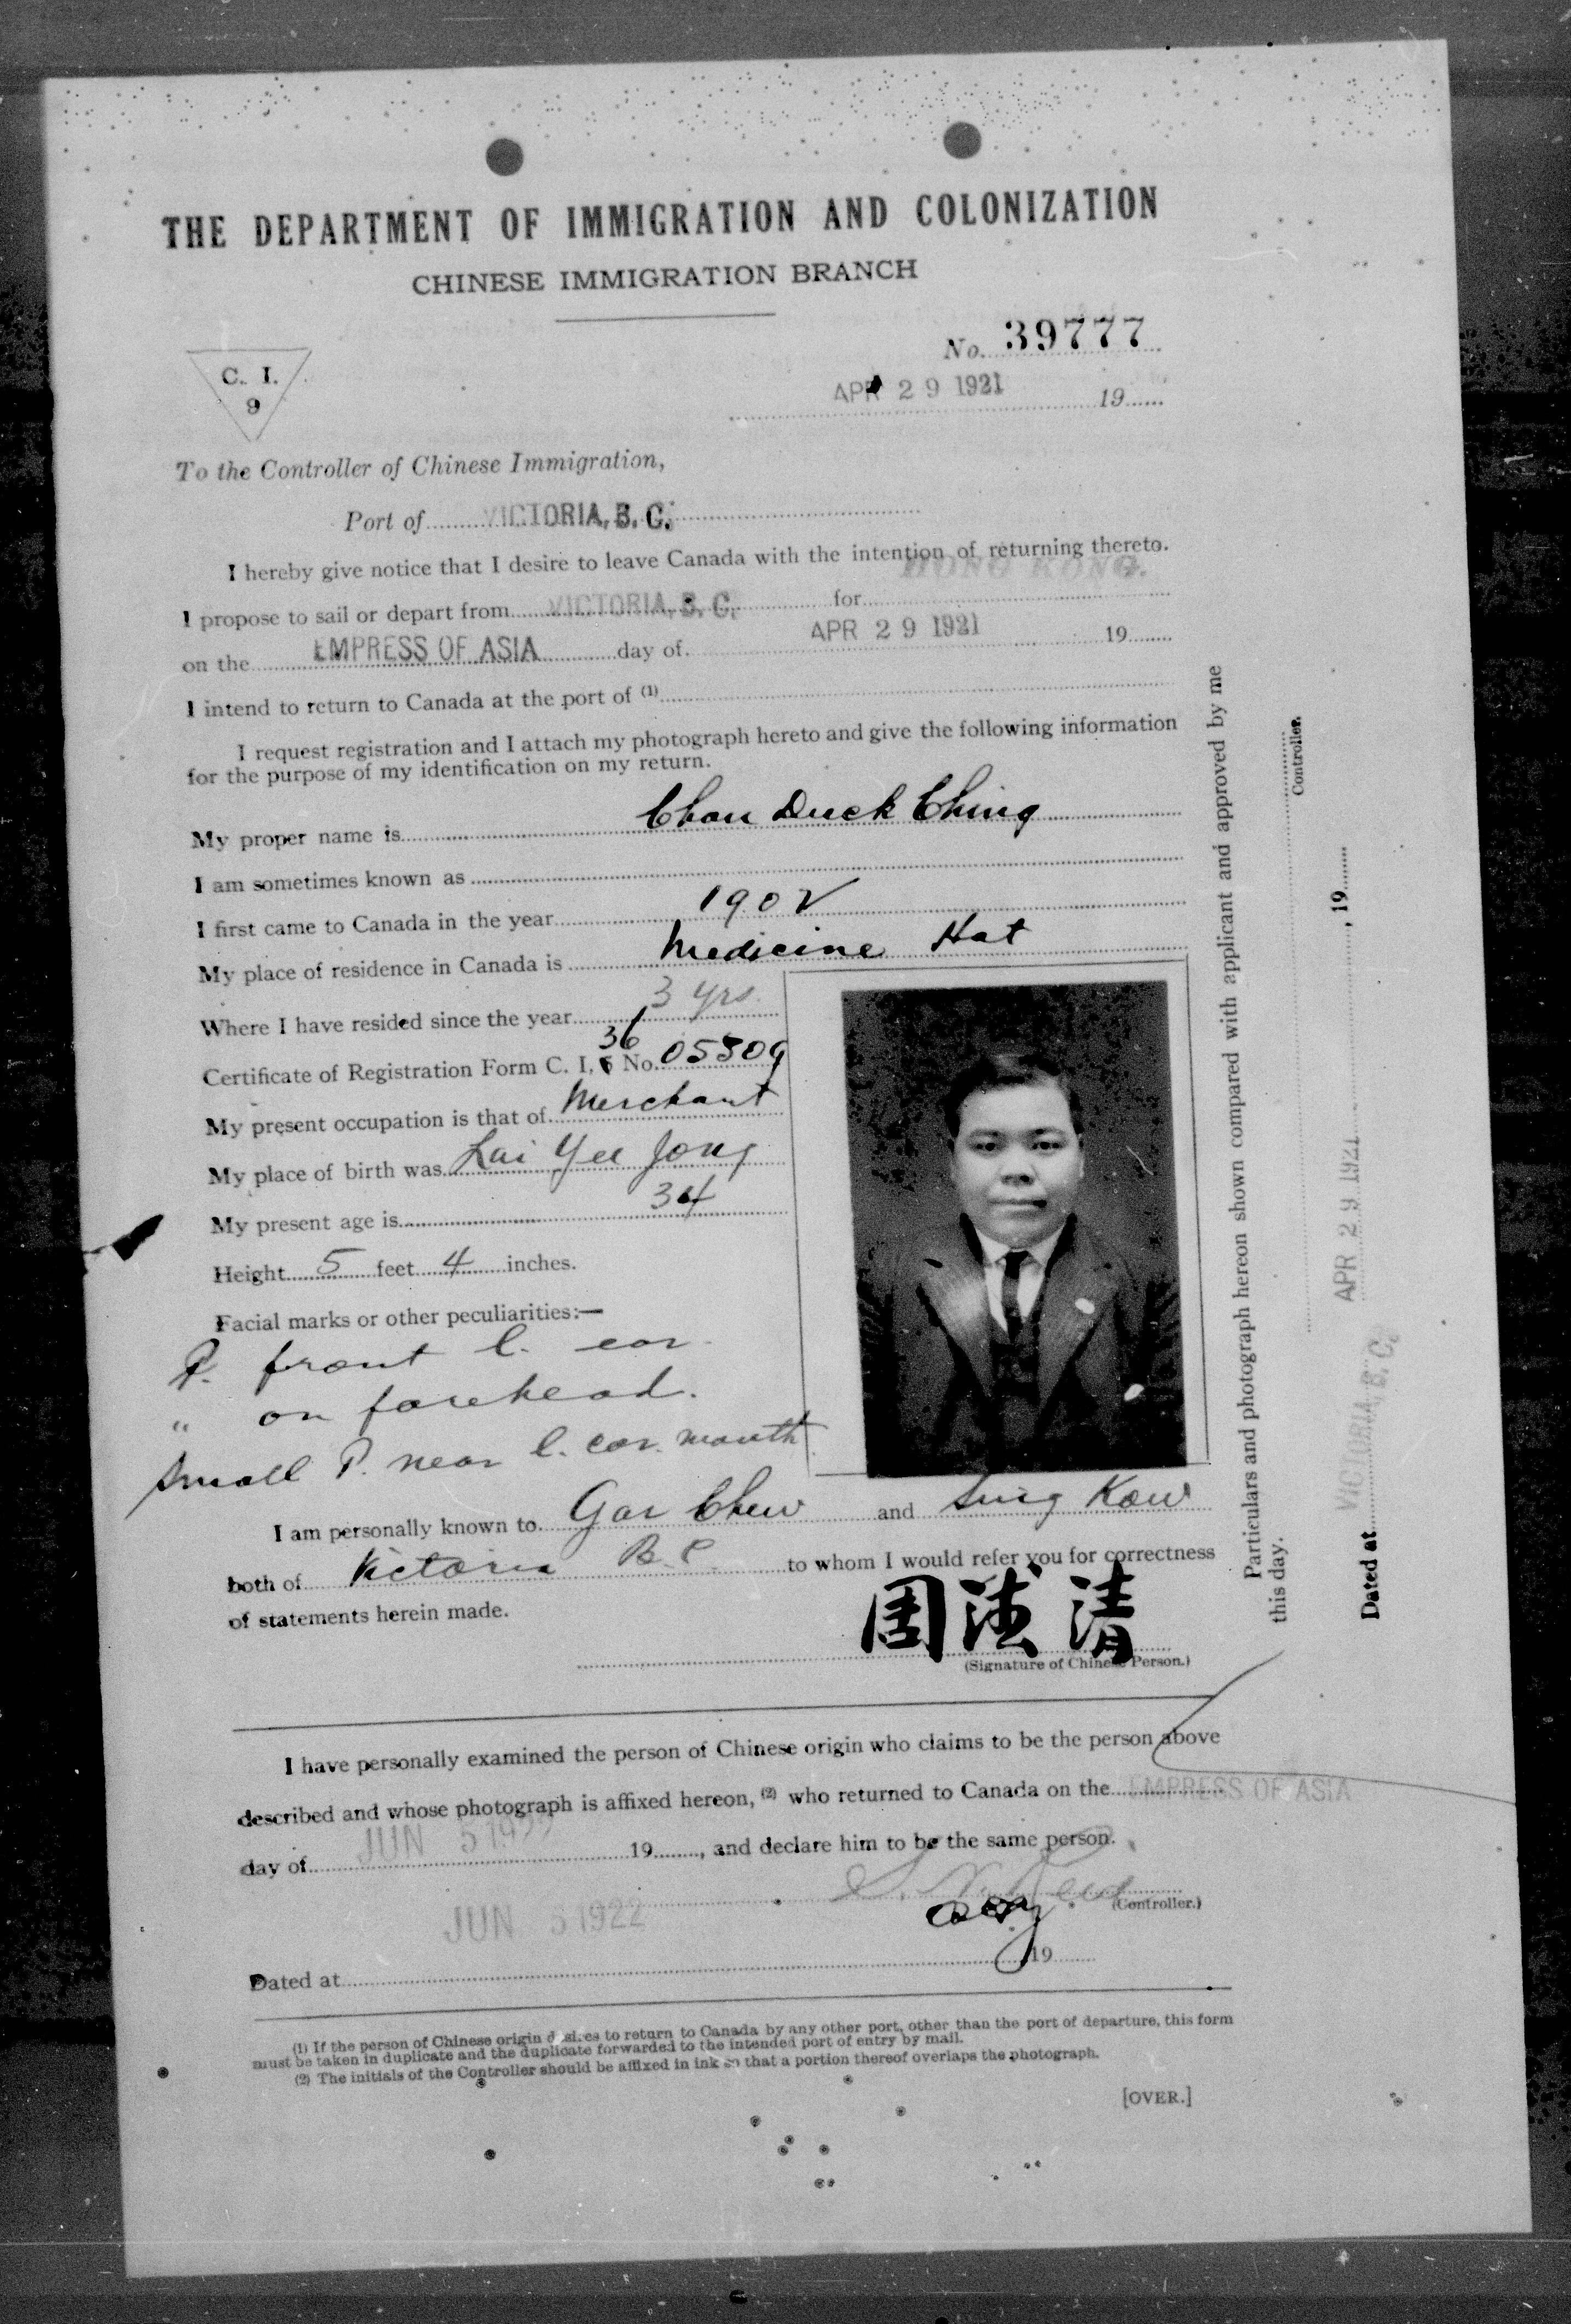 THE DEPARTMENT OF IMMIGRATION AND COLONIZATION
CHINESE IMMIGRATION BRANCH
No. 39777
C. I.
9
APR 29 1921 19
To the Controller of Chinese Immigration,
Port of VICTORIA, B. C.
I hereby give notice that I desire to leave Canada with the intention of returning thereto.
HONG KONG.
I propose to sail or depart from VICTORIA, B. C. for
on the EMPRESS OF ASIA day of APR 29 1921 19
I intend to return to Canada at the port of (1)
I request registration and I attach my photograph hereto and give the following information
for the purpose of my identification on my return.
My proper name is Chou Duck Ching
I am sometimes known as
I first came to Canada in the year 1902
My place of residence in Canada is Medicine Hat
Where I have resided since the year 3 yrs.
Certificate of Registration Form C. I. 36 No. 05309
My present occupation is that of Merchant
My place of birth was Lai Yee Jong
My present age is 34
Height 5 feet 4 inches.
Facial marks or other peculiarities:—
P. front l. ear.
" on forehead.
Small P. near l. cor. mouth
I am personally known to Gar Chew and Sing Kow
both of Victoria B.C. to whom I would refer you for correctness
of statements herein made.
周 清
(Signature of Chinese Person.)
I have personally examined the person of Chinese origin who claims to be the person above
described and whose photograph is affixed hereon, (2) who returned to Canada on the EMPRESS OF ASIA
day of JUN 5 1922 19, and declare him to be the same person.
(Controller.)
JUN 5 1922
Dated at 19
(1) If the person of Chinese origin desires to return to Canada by any other port, other than the port of departure, this form
must be taken in duplicate and the duplicate forwarded to the intended port of entry by mail.
(2) The initials of the Controller should be affixed in ink so that a portion thereof overlaps the photograph.
[OVER.]
Particulars and photograph hereon shown compared with applicant and approved by me
this day.
Controller.
Dated at VICTORIA, B. C. APR 29 1921, 19